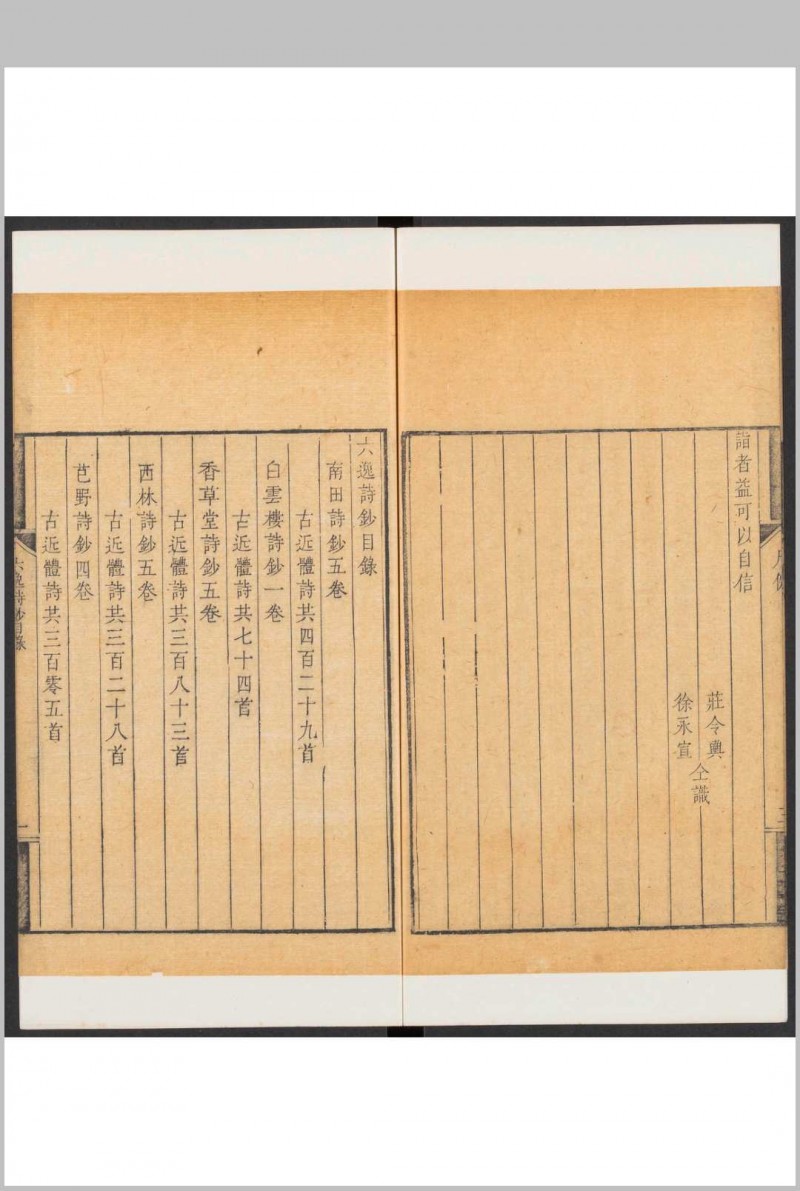 詣者益可以自信
莊令輿
徐永宣
仝識
六逸詩鈔目錄
南田詩鈔五卷
古近體詩共四百二十九首
白雲樓詩鈔一卷
古近體詩共七十四首
香草堂詩鈔五卷
古近體詩共三百八十三首
西林詩鈔五卷
古近體詩共三百二十八首
芑野詩鈔四卷
古近體詩共三百零五首
六逸詩鈔目錄
一